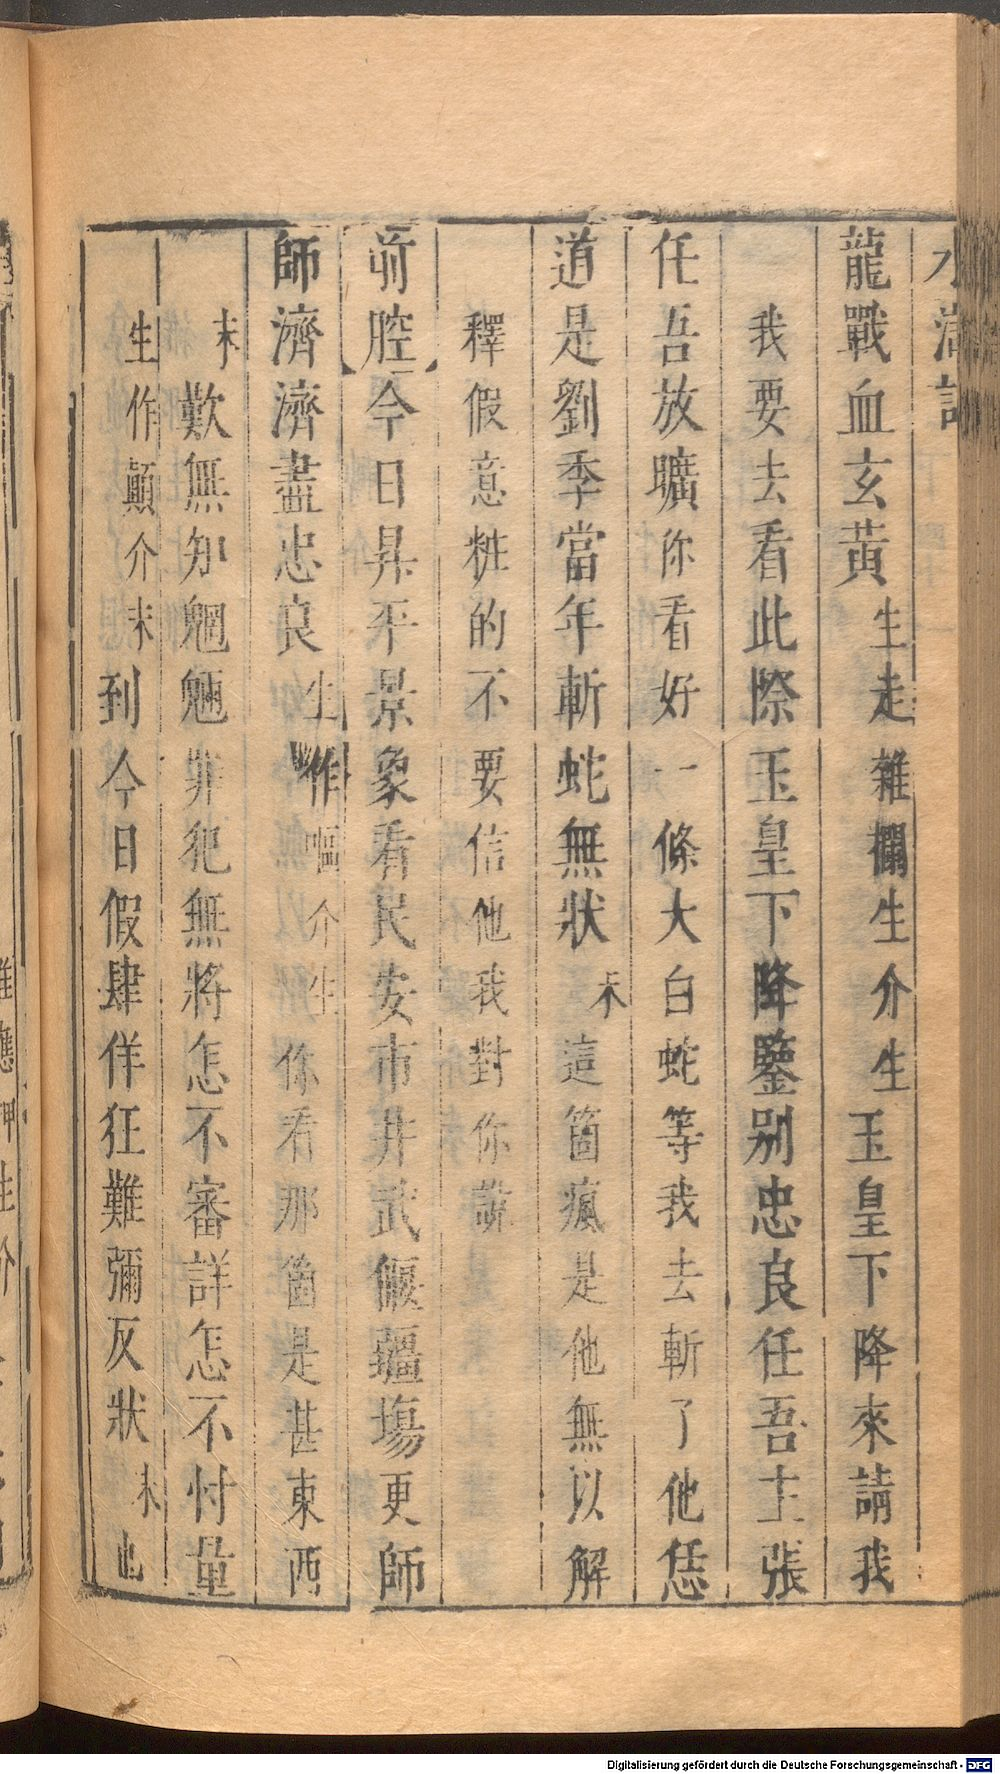 水滸記
龍戰血玄黃生走雜攔生介生玉皇下降來請我
我要去看此際玉皇下降鑒別忠良任吾主張
任吾放曠你看好一條大白蛇等我去斬了他恁
道是劉季當年斬蛇無狀末這箇瘋是他無以解
釋假意粧的不要信他我對你說
前腔今日昇平景象看民安市井武偃疆場更師
師濟濟盡忠良生作嘔介生你看那箇是甚東西
末歎無知魍魎罪犯無將怎不審詳怎不忖量
生作顛介末到今日假肆佯狂難彌反狀末
Digitalisierung gefördert durch die Deutsche Forschungsgemeinschaft - DFG